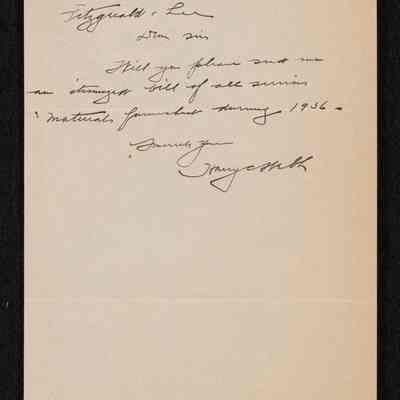 Fitzgerald & Lee
Dear Sir
Will you please send me
an itemized bill of all services
& materials furnished during 1936.
Sincerely Yours